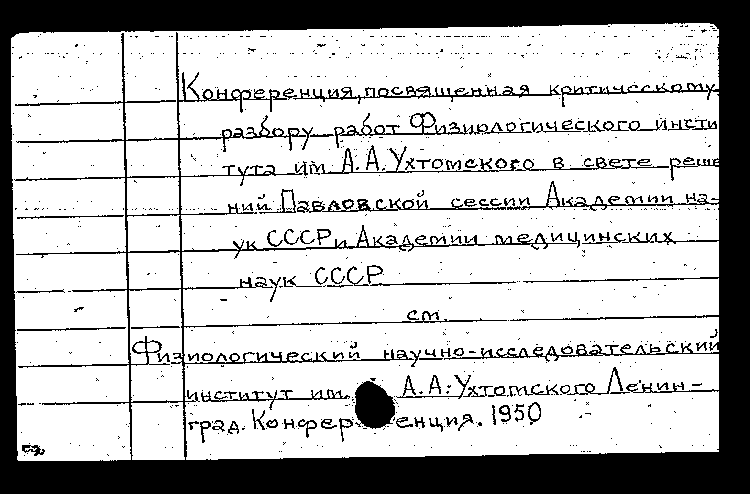 Конференция, посвященная критическому
разбору работ Физиологического инсти
тута им. А.А. Ухтомского в свете реше
ний Павловской сессии Академии на-
ук СССР и Академии медицинских
наук СССР
см.
Физиологический научно-исследовательский
институт им. А.А. Ухтомского Ленин-
град. Конференция. 1950